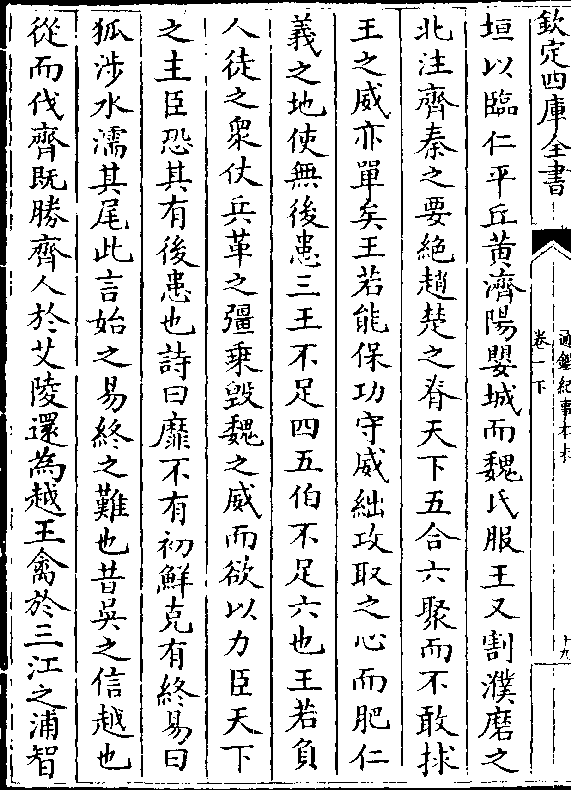 欽定四庫全書
通鑑紀事本末
卷一下
十九
垣以臨仁平丘黄濟陽嬰城而魏氏服王又割濮磨之
北注齊秦之要絶趙楚之脊天下五合六聚而不敢捄
王之威亦單矣王若能保功守威絀攻取之心而肥仁
義之地使無後患三王不足四五伯不足六也王若負
人徒之衆仗兵革之彊乗毁魏之威而欲以力臣天下
之主臣恐其有後患也詩曰靡不有初鮮克有終易曰
狐涉水濡其尾此言始之易終之難也昔吳之信越也
從而伐齊既勝齊人於艾陵還為越王禽於三江之浦智